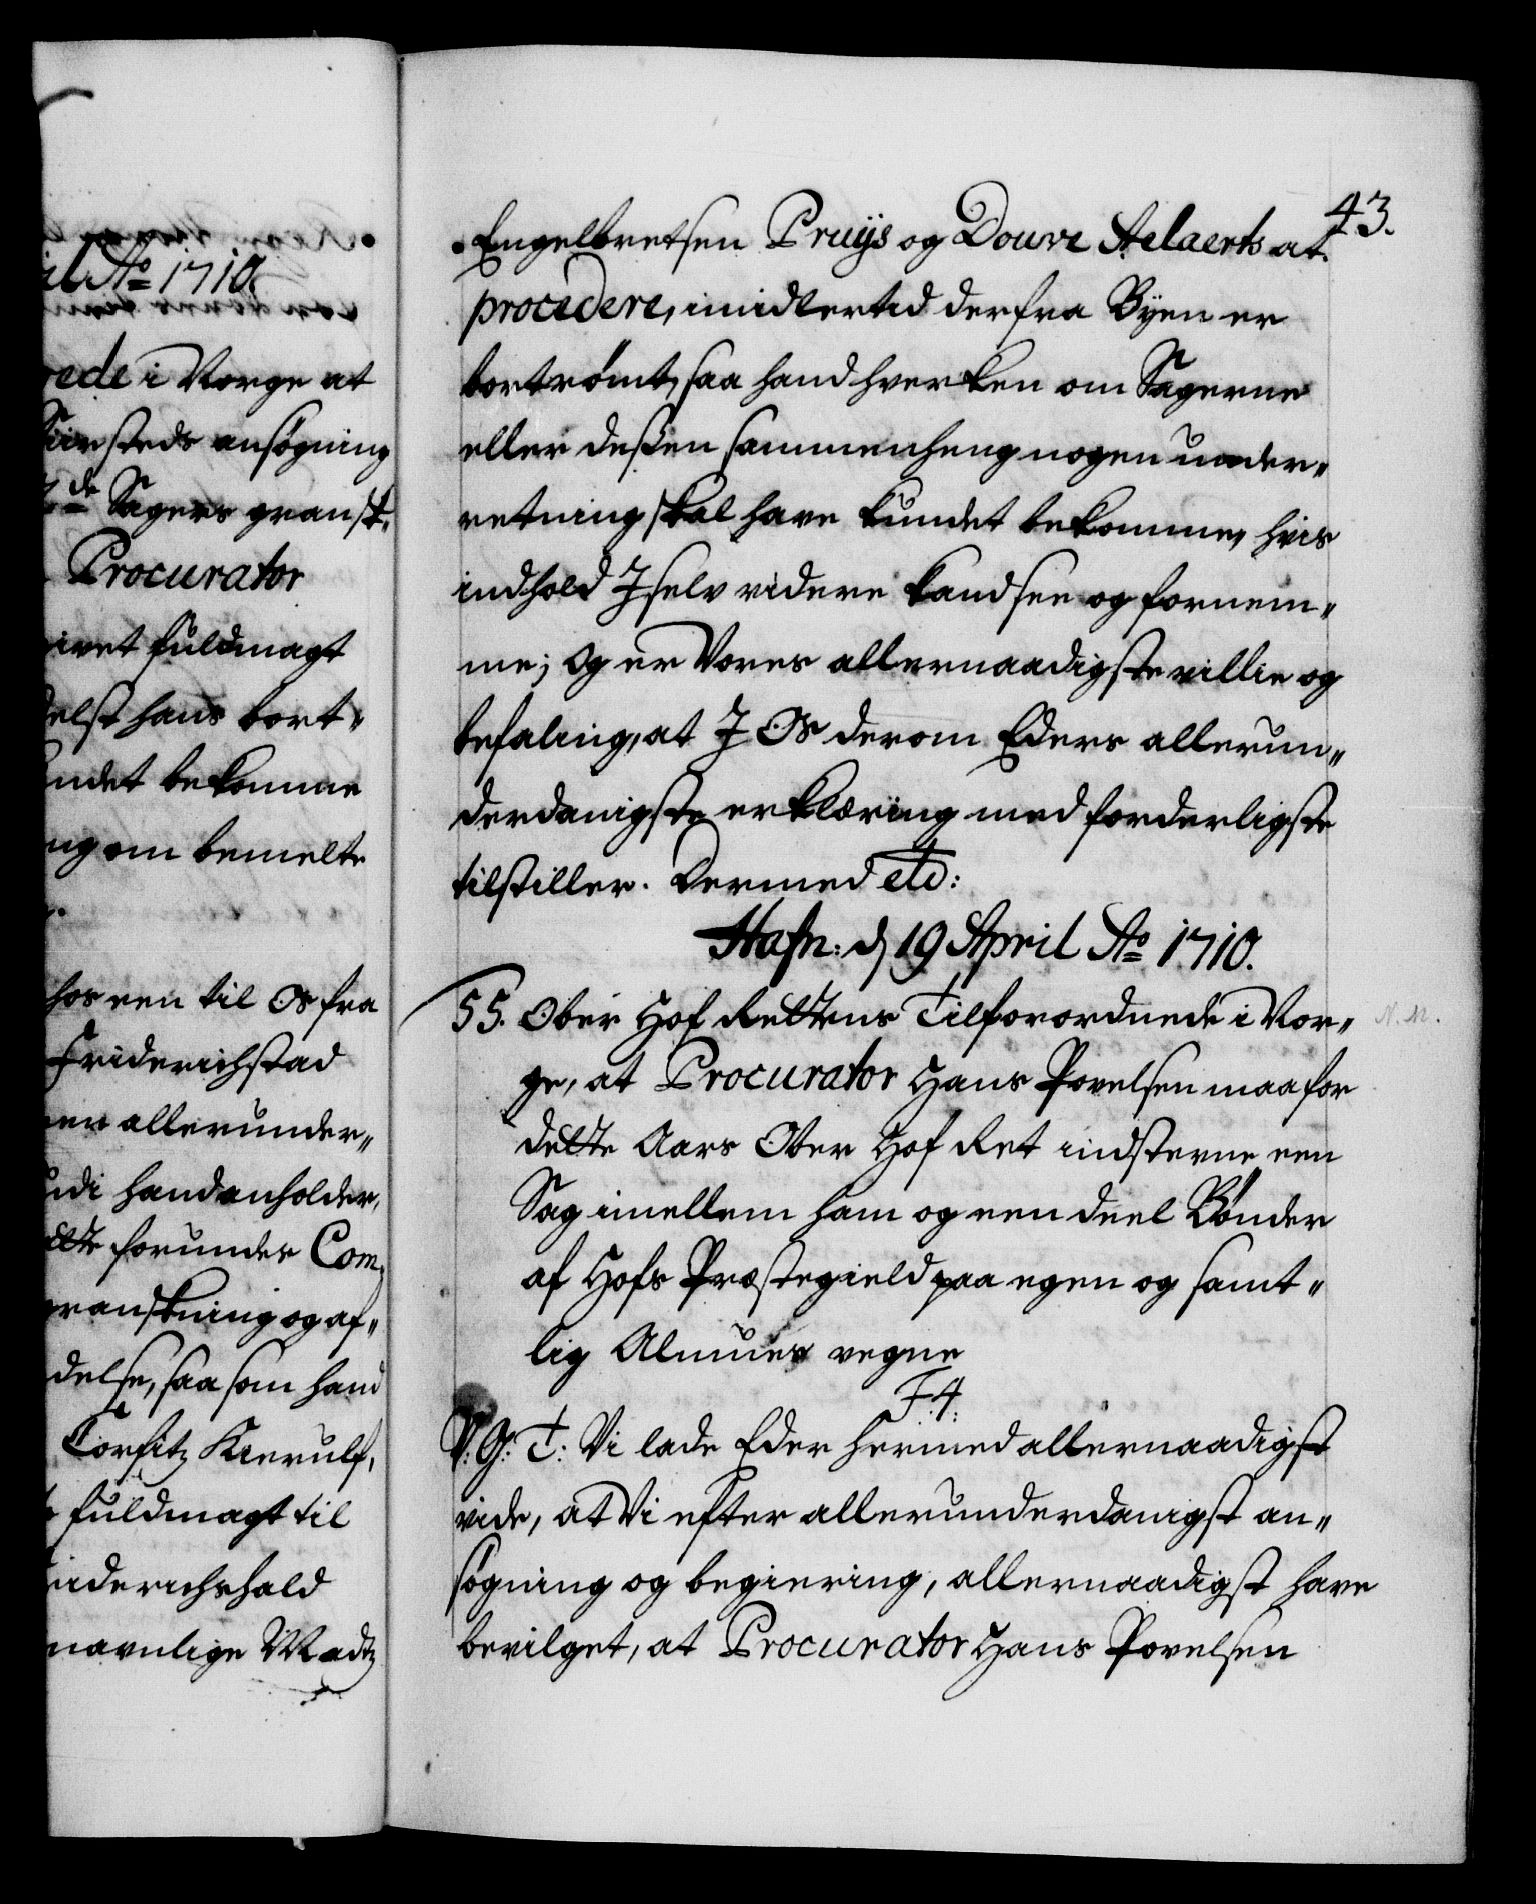 il Aō 1710.
rede i Norge at
Kiersteds ansøgning
de Sagers gransk.
Procurator
ivet fuldmagt
delst hans bort„
undet bekomme
ng om bemelte
hos een til Os fra
Friderichstad
en allerunder„
udi hand anholder,
ville forundes Com„
granskning og af„
delse, saa som hand
Corfitz Kierulf,
fuldmagt til
riderichshald
navnlige Madtz
43.
Engelbretsen Pruijs og Douwe Aelaerts at
procedere, imidlertid derfra Byen er
bortrømt, saa hand hverken om Sagerne
eller deßen sammenheng nogen under„
retning skal have kundet bekomme, hvis
indhold I selv videre kand see og fornem„
me; Og er Vores allernaadigste villie og
befaling, at I Os derom Eders allerun„
derdanigste erklæring med forderligste
tilstiller. Dermed etc:
Hafn: d 19 April Aō 1710.
55. Ober Hof Rettens Tilforordnede i Nor„
ge, at Procurator Hans Povelsen maa for
dette Aars Ober Hof Ret indsteyne een
Sag imellem ham og een deel Bønder
af Hofs Præstegield paa egen og samt„
lig Almues vegne
F 4.
V: G: T: Vi lade Eder hermed allernaadigst
vide, at Vi efter allerunderdanigst an„
søgning og begiering, allernaadigst have
bevilget, at Procurator Hans Povelsen
N. M.